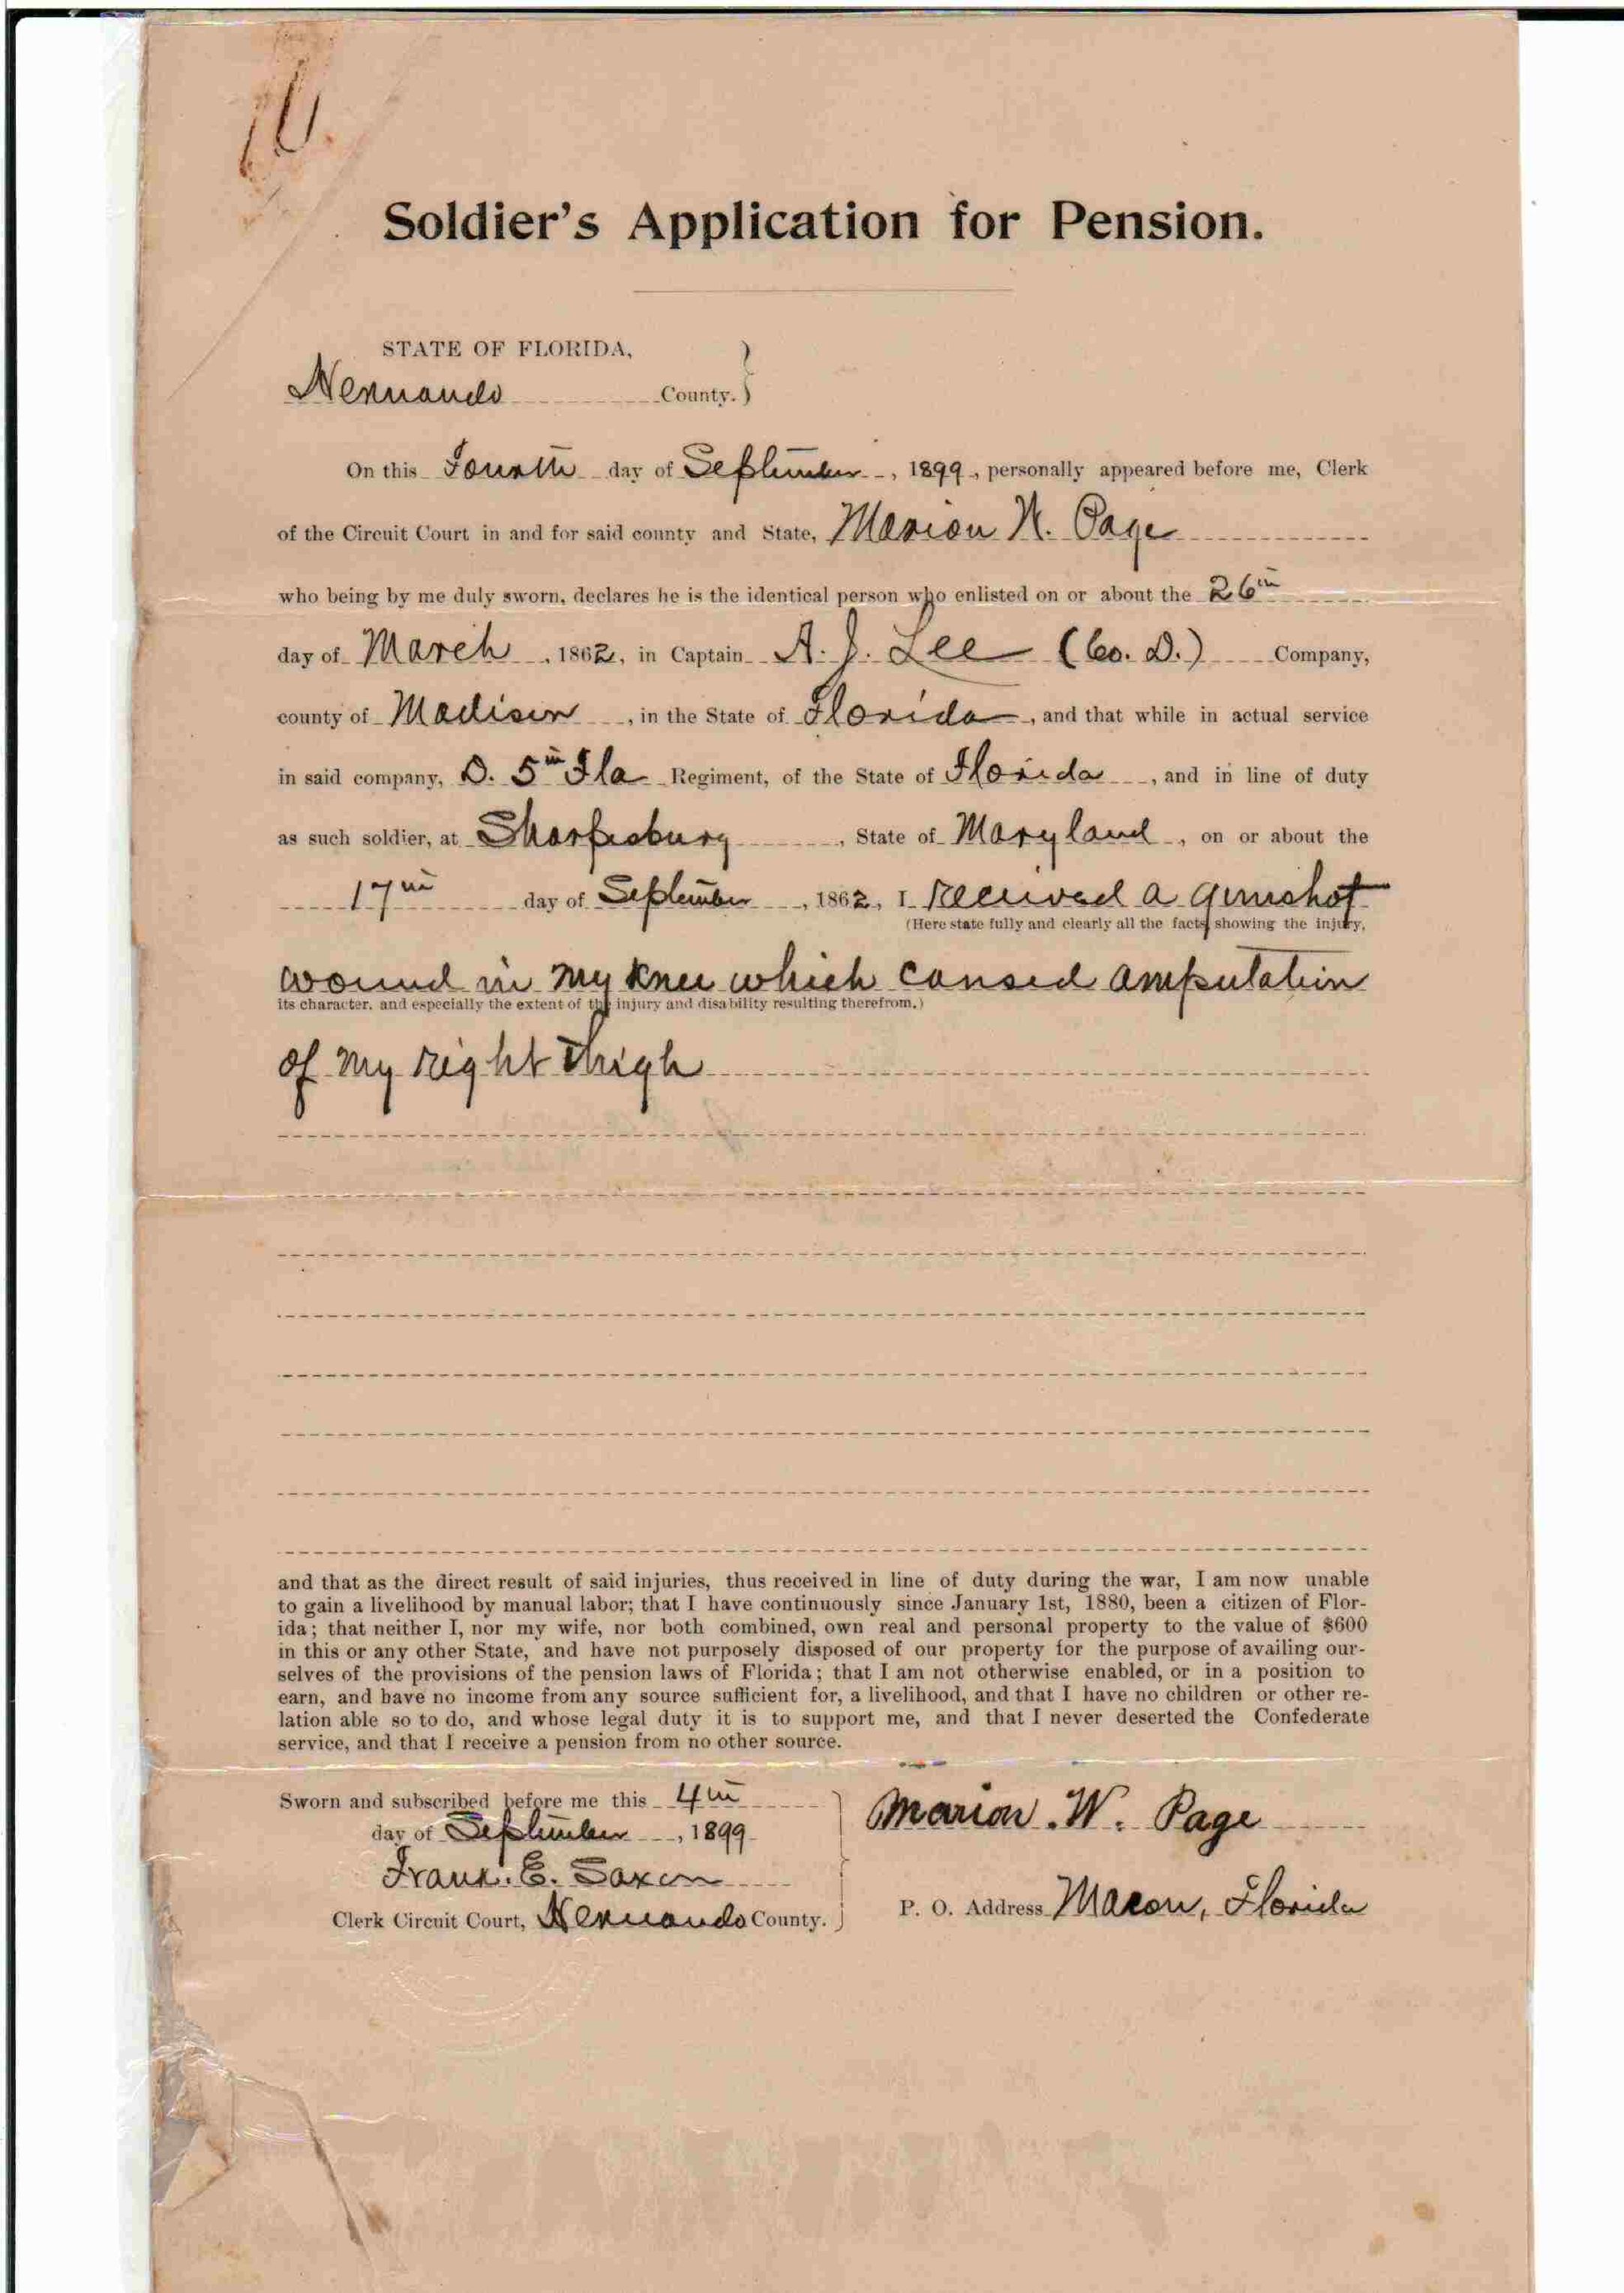 Soldier's Application for Pension.
STATE OF FLORIDA,
Hernando County.
On this Fourth day of September, 1899, personally appeared before me, Clerk
of the Circuit Court in and for said county and State, Marion W. Page
who being by me duly sworn, declares he is the identical person who enlisted on or about the 26th
day of March, 1862, in Captain A. J. Lee (Co. D.) Company,
county of Madison, in the State of Florida, and that while in actual service
in said company, D. 5th Fla Regiment, of the State of Florida, and in line of duty
as such soldier, at Sharpsburg, State of Maryland, on or about the
17th day of September, 1862, I received a gunshot
(Here state fully and clearly all the facts showing the injury,
wound in my knee which caused amputation
its character, and especially the extent of the injury and disability resulting therefrom.)
of my right thigh
and that as the direct result of said injuries, thus received in line of duty during the war, I am now unable
to gain a livelihood by manual labor; that I have continuously since January 1st, 1880, been a citizen of Flor-
ida; that neither I, nor my wife, nor both combined, own real and personal property to the value of $600
in this or any other State, and have not purposely disposed of our property for the purpose of availing our-
selves of the provisions of the pension laws of Florida; that I am not otherwise enabled, or in a position to
earn, and have no income from any source sufficient for, a livelihood, and that I have no children or other re-
lation able so to do, and whose legal duty it is to support me, and that I never deserted the Confederate
service, and that I receive a pension from no other source.
Sworn and subscribed before me this 4th
day of September, 1899
Frank. E. Saxon
Clerk Circuit Court, Hernando County.
Marion. W. Page
P. O. Address Macon, Florida